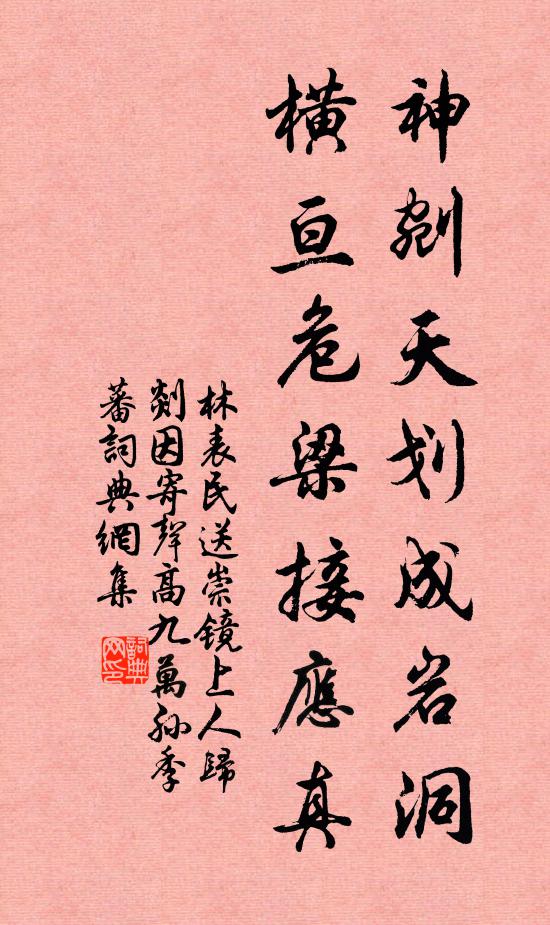 神剜天划成岩洞
橫亘危梁接應真
林表民送崇鏡上人歸
剡因寄聲高九萬孫季
蕃詞典網集
詞典網印